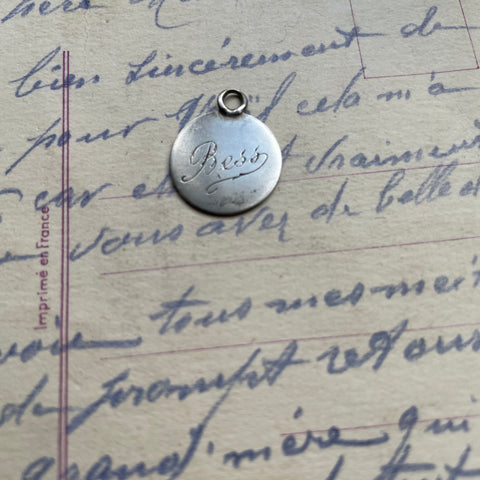 bien sincèrement de
pour qu'il cela m'a
Bess
car vraiment
vous avez de belle
Imprimé en France
tous mes mei
voir
de prompt retour
grand'mère qui
tout